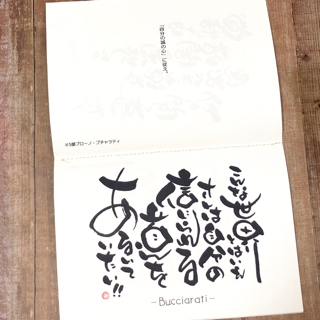 「自分の誠の心」に従う。
※5部ブローノ・ブチャラティ
こんな世界とはいえ
オレは自分の
信じられる
道を
あるいていたい!!
- Bucciarati -